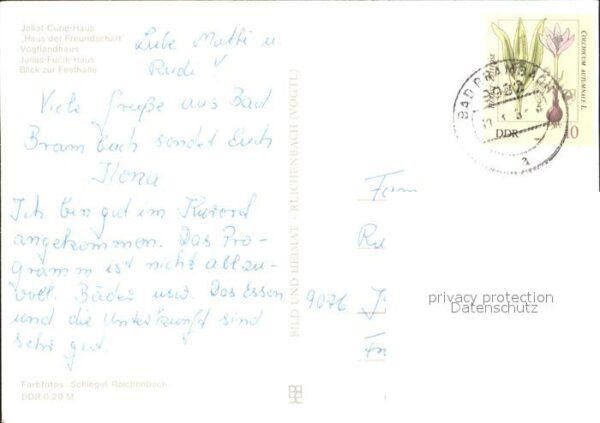 Joliot-Curie-Haus
„Haus der Freundschaft"
Vogtlandhaus
Julius-Fučik-Haus
Blick zur Festhalle
Liebe Mutti u.
Rudi
Viele Grüße aus Bad
Brambach sendet Euch
Ilona
Ich bin gut im Kurord
angekommen. Das Pro-
gramm ist nicht allzu-
voll. Bäder usw. Das Essen
und die Unterkunft sind
sehr gut.
Farbfotos: Schlegel, Reichenbach
DDR 0,20 M
BILD UND HEIMAT · REICHENBACH (VOGTL)
COLCHICUM AUTUMNALE L.
BAD BRAMBACH
DDR
10
a
9076
privacy protection
Datenschutz